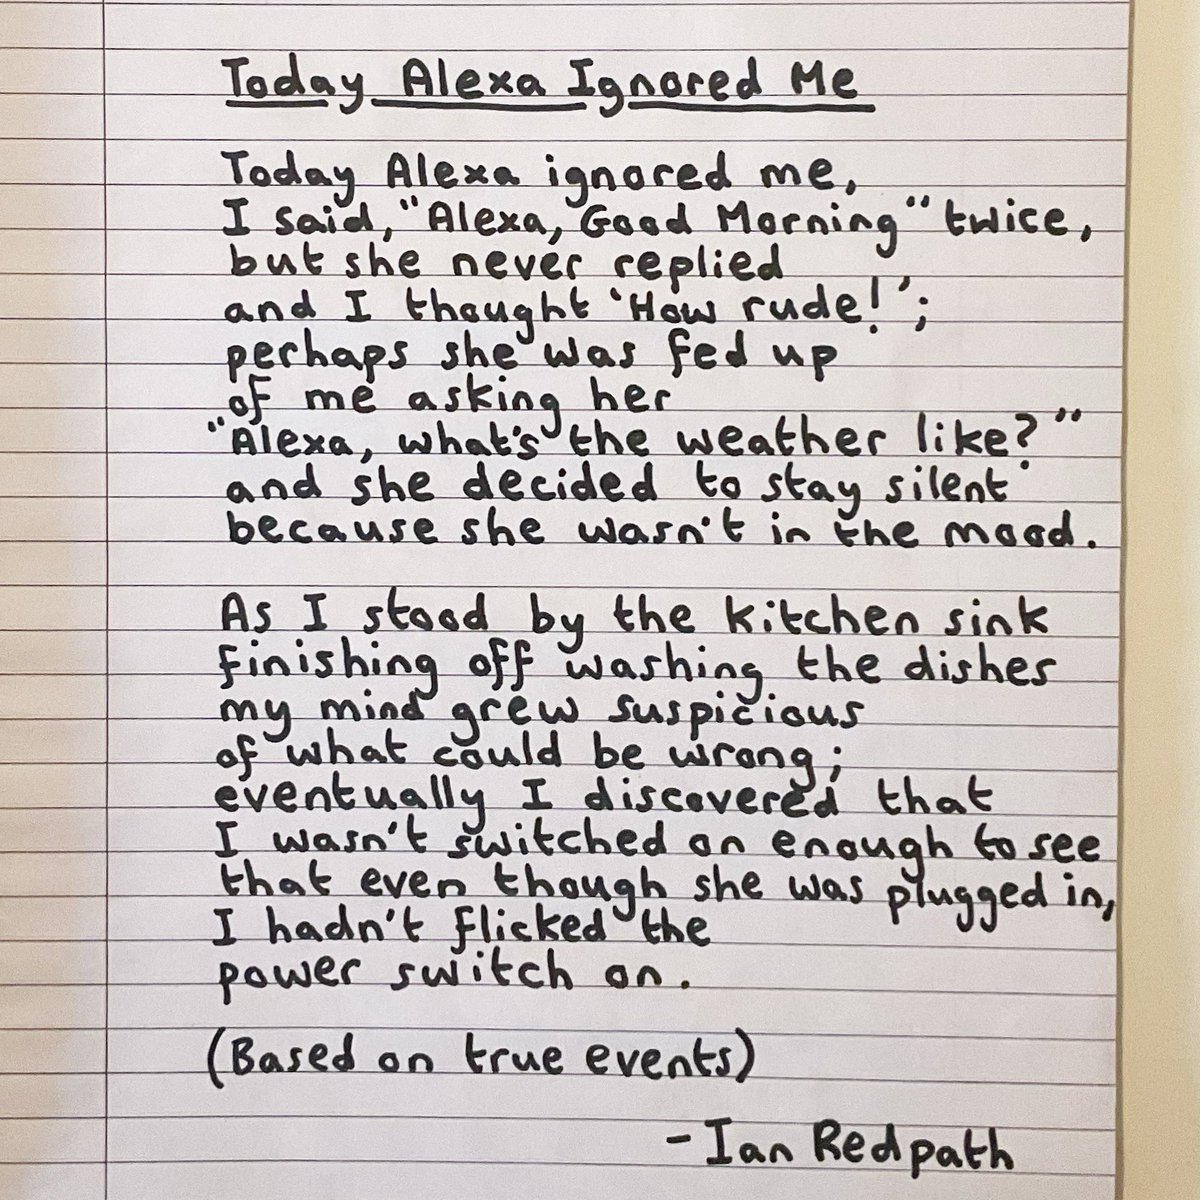 Today Alexa Ignored Me
Today Alexa ignored me,
I said, "Alexa, Good Morning" twice,
but she never replied
and I thought 'How rude!';
perhaps she was fed up
of me asking her
"Alexa, what's the weather like?"
and she decided to stay silent
because she wasn't in the mood.
As I stood by the kitchen sink
finishing off washing the dishes
my mind grew suspicious
of what could be wrong;
eventually I discovered that
I wasn't switched on enough to see
that even though she was plugged in,
I hadn't flicked the
power switch on.
(Based on true events)
- Ian Redpath